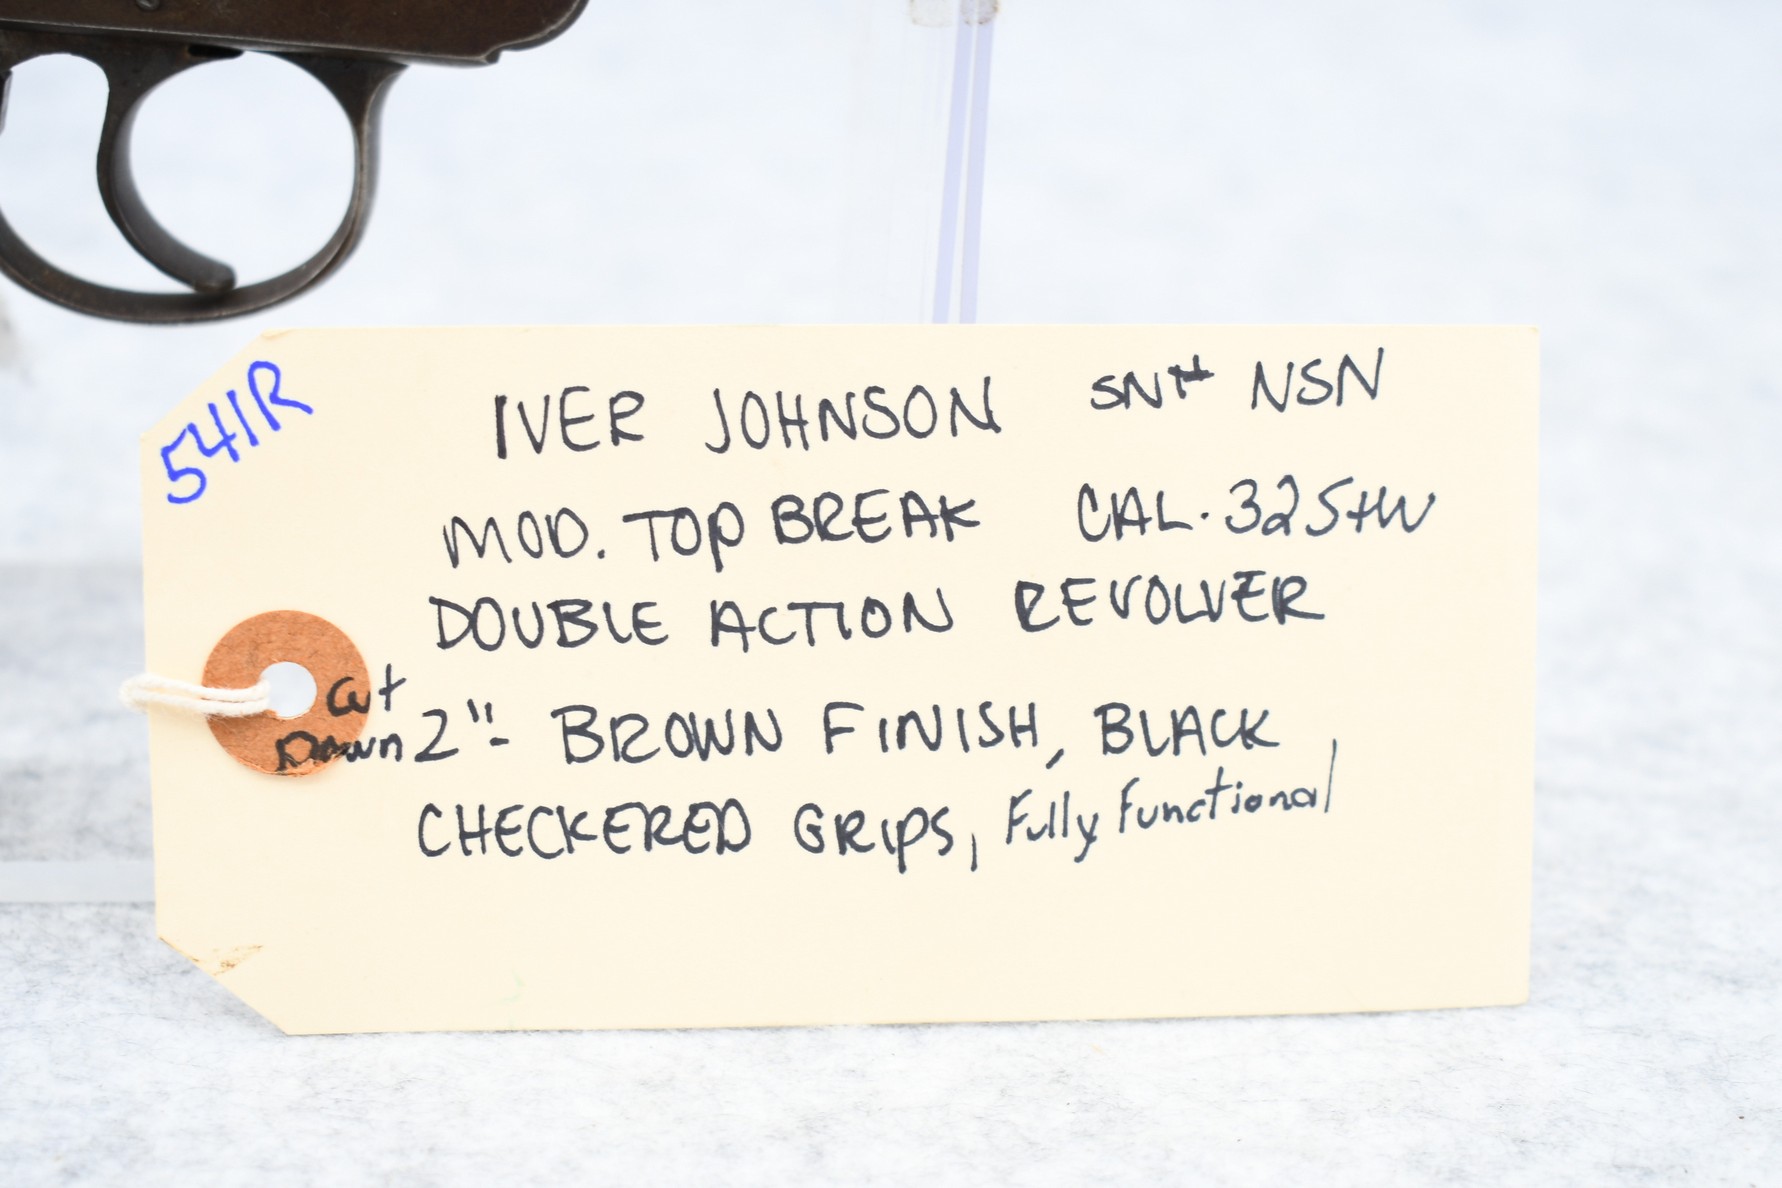 541R
IVER JOHNSON SN# NSN
MOD. TOP BREAK CAL. 32 S+W
DOUBLE ACTION REVOLVER
Cut
Down 2"- BROWN FINISH, BLACK
CHECKERED GRIPS, Fully Functional